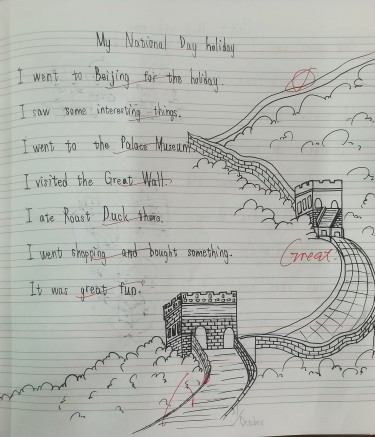 My National Day holiday
I went to Beijing for the holiday.
I saw some interesting things.
I went to the Palace Museum.
I visited the Great Wall.
I ate Roast Duck there.
I went shopping and bought something.
Great.
It was great fun.
October